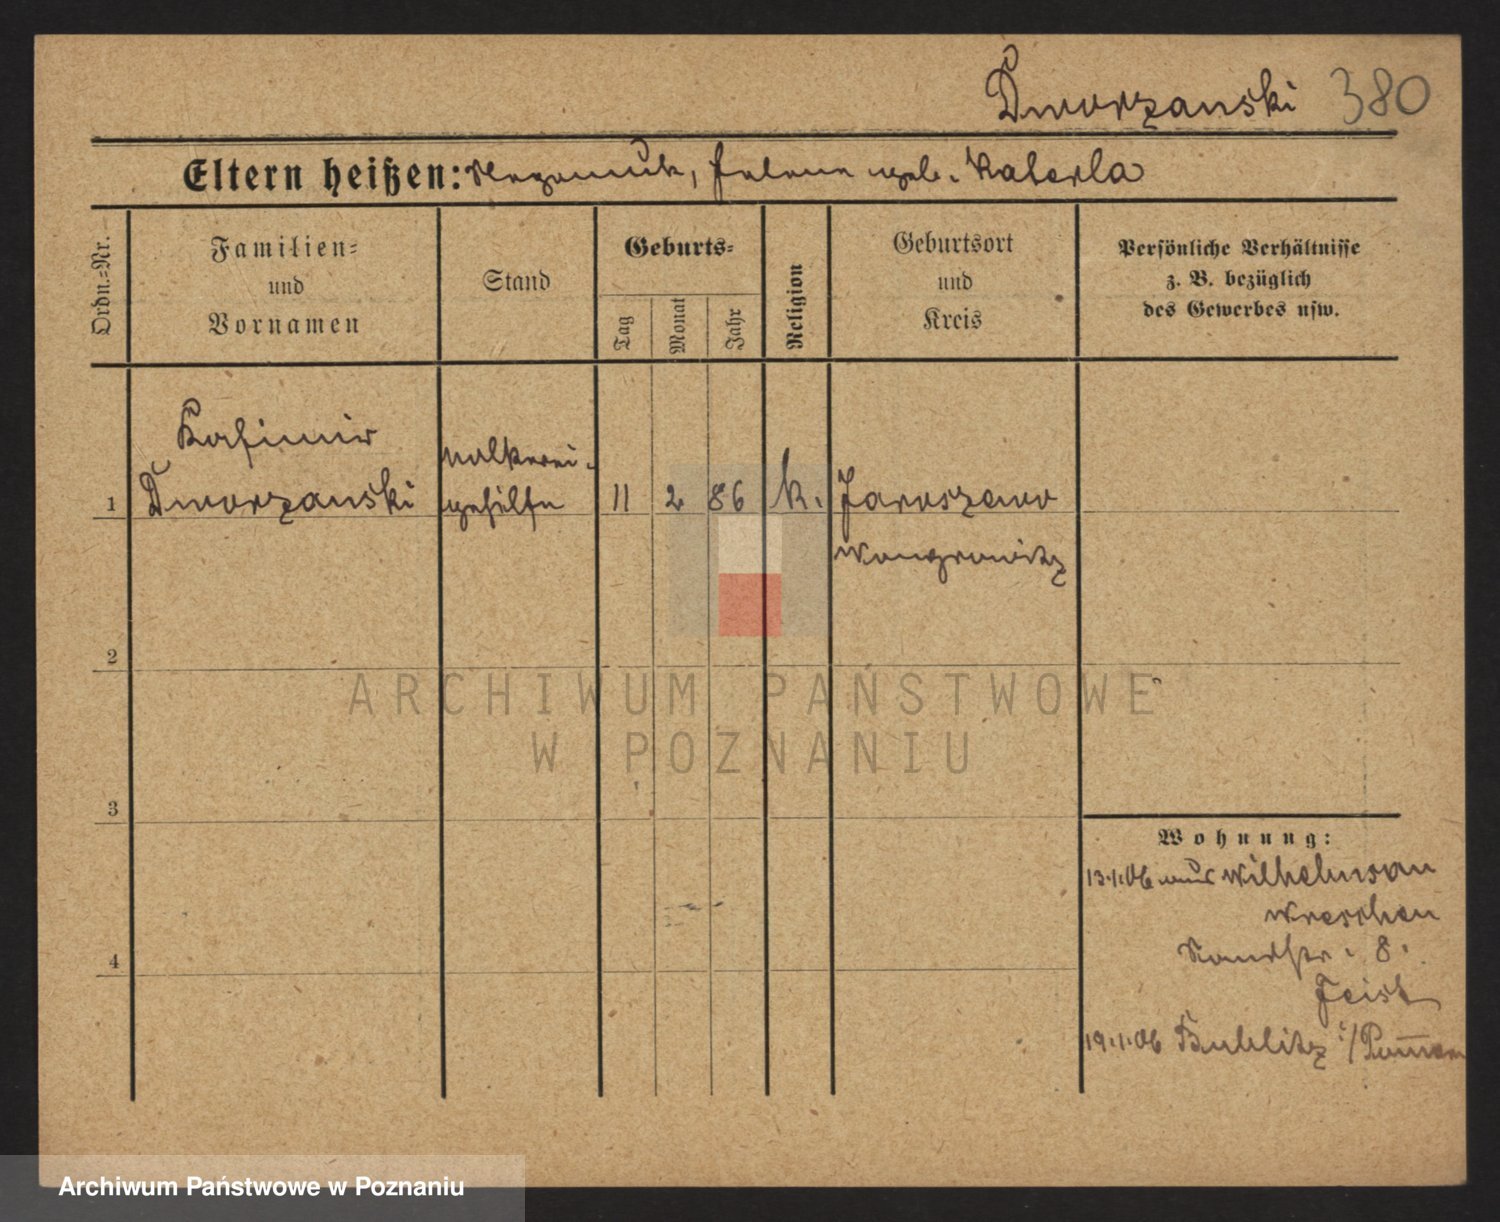 Dworzanski 380
Eltern heißen: Nepomuk, Helene geb. Katerla
Ordn.=Nr.
Familien=
und
Vornamen
Stand
Geburts=
Tag
Monat
Jahr
Religion
Geburtsort
und
Kreis
Persönliche Verhältnisse
z. B. bezüglich
des Gewerbes usw.
Kasimir
Dworzanski
Molkerei-
gehilfe
1
11 2 86 k.
Jaroszewo
Wongrowitz
2
3
4
Wohnung:
13.1.06 aus Wilhelmsau
Wreschen
8.
Feist
19.1.06 Bublitz i/Pommern
ARCHIWUM PAŃSTWOWE
W POZNANIU
Archiwum Państwowe w Poznaniu